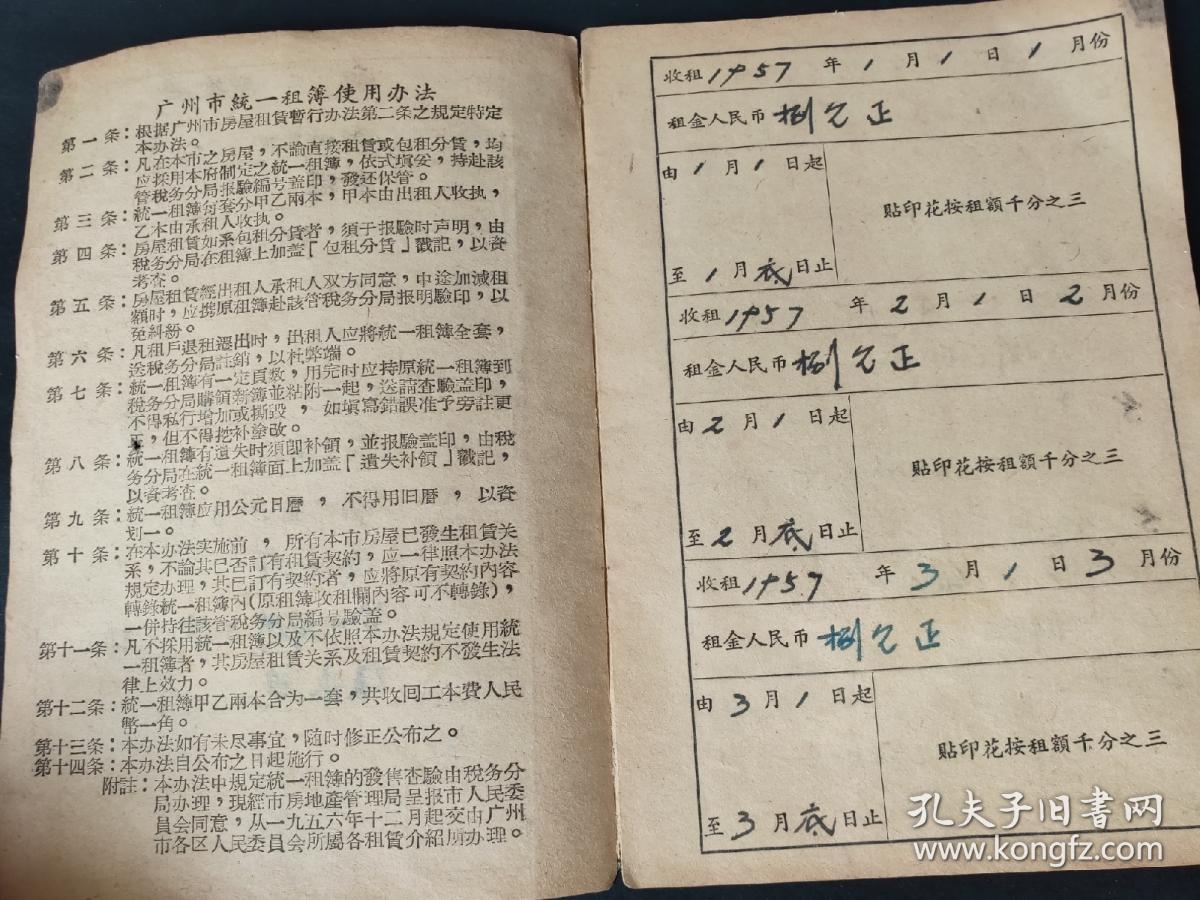 广州市統一租簿使用办法
第一条：根据广州市房屋租賃暫行办法第二条之規定特定
本办法。
第二条：凡在本市之房屋，不論直接租賃或包租分賃，均
应採用本府制定之統一租簿，依式填妥，持赴該
管税务分局报驗編号盖印，發还保管。
第三条：統一租簿每套分甲乙兩本，甲本由出租人收执，
乙本由承租人收执。
第四条：房屋租賃如系包租分賃者，須于报驗时声明，由
税务分局在租簿上加盖「包租分賃」戳記，以資
考查。
第五条：房屋租賃經出租人承租人双方同意，中途加減租
額时，应携原租簿赴該管税务分局报明驗印，以
免糾紛。
第六条：凡租戶退租遷出时，出租人应將統一租簿全套，
送税务分局註銷，以杜弊端。
第七条：統一租簿有一定頁数，用完时应持原統一租簿到
税务分局購領新簿並粘附一起，送請查驗盖印，
不得私行增加或撕毀，如填寫錯誤准予旁註更
正，但不得挖补塗改。
第八条：統一租簿有遺失时須卽补領，並报驗盖印，由税
务分局在統一租簿面上加盖「遺失补領」戳記，
以資考查。
第九条：統一租簿应用公元日曆，不得用旧曆，以資
划一。
第十条：在本办法实施前，所有本市房屋已發生租賃关
系，不論其已否訂有租賃契約，应一律照本办法
規定办理，其已訂有契約者，应將原有契約內容
轉錄統一租簿內(原租簿收租欄內容可不轉錄)，
一併持往該管税务分局編号驗盖。
第十一条：凡不採用統一租簿以及不依照本办法規定使用統
一租簿者，其房屋租賃关系及租賃契約不發生法
律上效力。
第十二条：統一租簿甲乙兩本合为一套，共收回工本費人民
幣一角。
第十三条：本办法如有未尽事宜，随时修正公布之。
第十四条：本办法自公布之日起施行。
附註：本办法中規定統一租簿的發售查驗由税务分
局办理，現經市房地產管理局呈报市人民委
員会同意，从一九五六年十二月起交由广州
市各区人民委員会所屬各租賃介紹所办理。
收租1957年1月1日1月份
租金人民币捌元正
由1月1日起
貼印花按租額千分之三
至1月底日止
收租1957年2月1日2月份
租金人民币捌元正
由2月1日起
貼印花按租額千分之三
至2月底日止
收租1957年3月1日3月份
租金人民币捌元正
由3月1日起
貼印花按租額千分之三
至3月底日止
孔夫子旧书网
www.kongfz.com